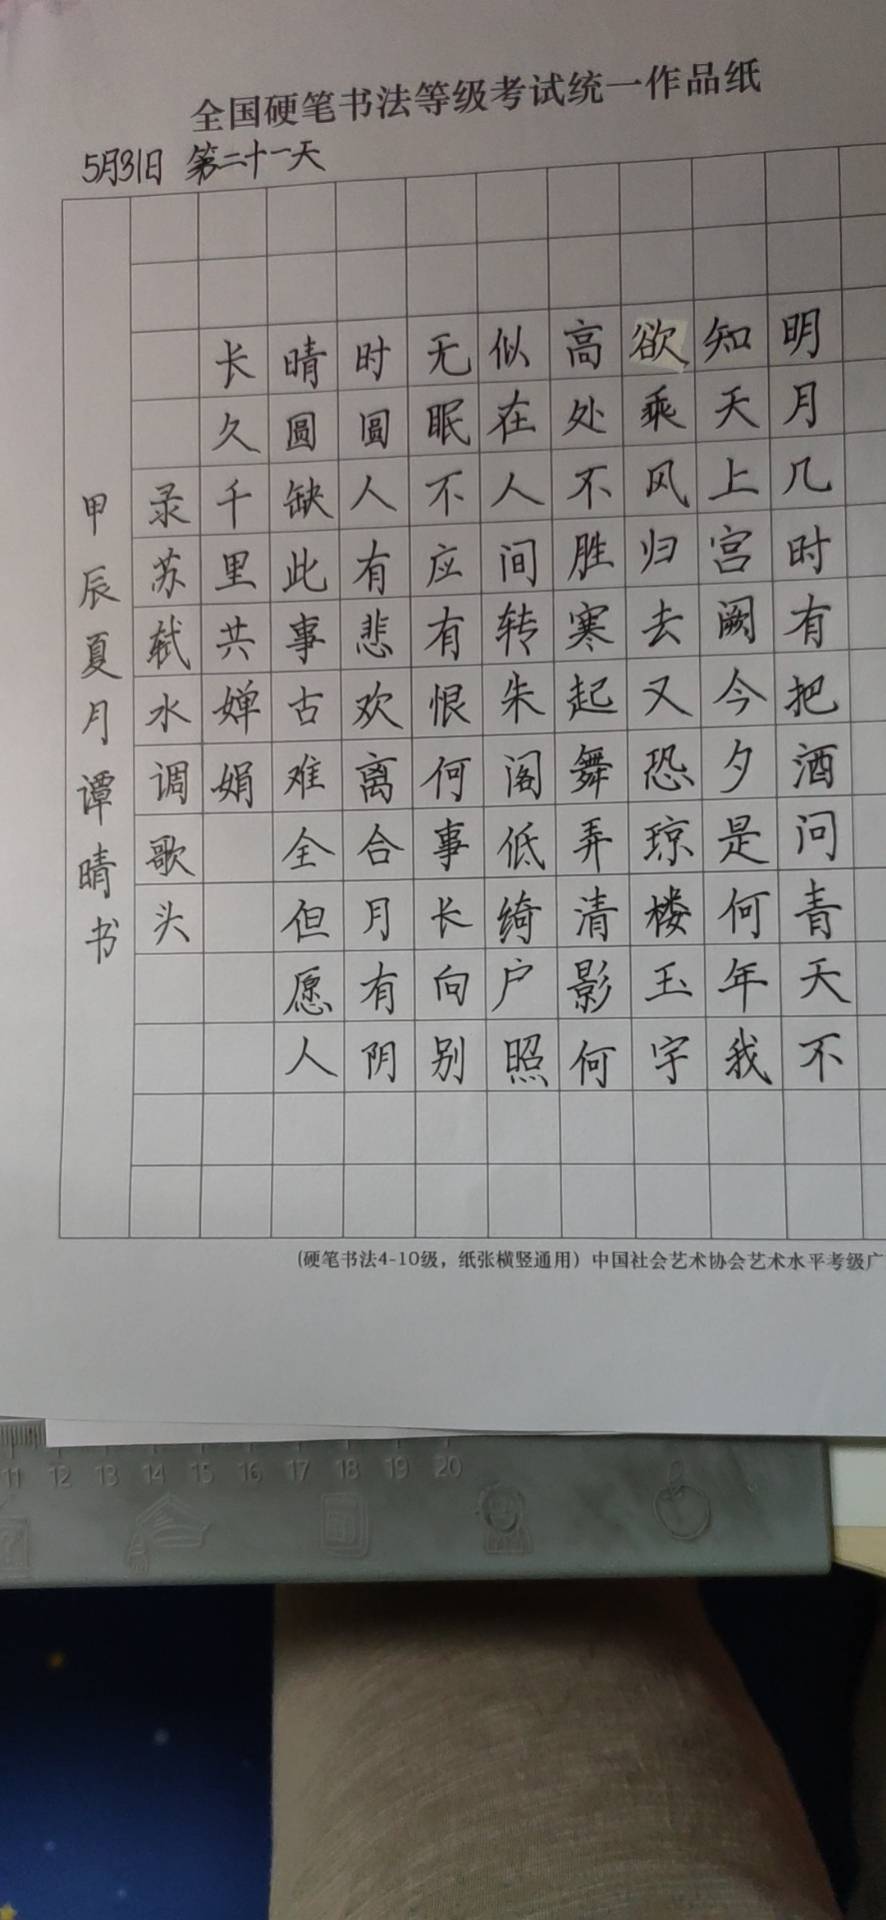 全国硬笔书法等级考试统一作品纸
5月31日 第二十一天
明月几时有把酒问青天不
知天上宫阙今夕是何年我
欲乘风归去又恐琼楼玉宇
高处不胜寒起舞弄清影何
似在人间转朱阁低绮户照
无眠不应有恨何事长向别
时圆人有悲欢离合月有阴
晴圆缺此事古难全但愿人
长久千里共婵娟
录苏轼水调歌头
甲辰夏月谭晴书
(硬笔书法4-10级，纸张横竖通用）中国社会艺术协会艺术水平考级广
11 12 13 14 15 16 17 18 19 20